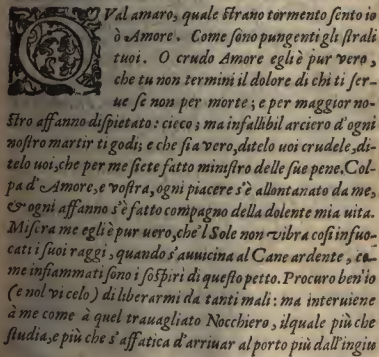 QVal amaro, quale ſtrano tormento ſento io
ò Amore. Come ſono pungenti gli ſtrali
tuoi. O crudo Amore egli è pur vero,
che tu non termini il dolore di chi ti ſer-
ue ſe non per morte; e per maggior no-
ſtro affanno diſpietato: cieco; ma infallibil arciero d'ogni
noſtro martir ti godi; e che ſia vero, ditelo uoi crudele, di-
telo uoi, che per me ſiete fatto miniſtro delle ſue pene. Col-
pa d'Amore, e voſtra, ogni piacere s'è allontanato da me,
& ogni affanno s'è fatto compagno della dolente mia uita.
Miſera me egli è pur uero, che'l Sole non vibra coſi infuo-
cati i ſuoi raggi, quando s'auuicina al Cane ardente, co-
me infiammati ſono i ſoſpiri di queſto petto. Procuro ben'io
(e nol vi celo) di liberarmi da tanti mali: ma interuiene
à me come à quel trauagliato Nocchiero, ilquale più che
ſtudia, e più che s'affatica d'arriuar al porto più dall'ingiu